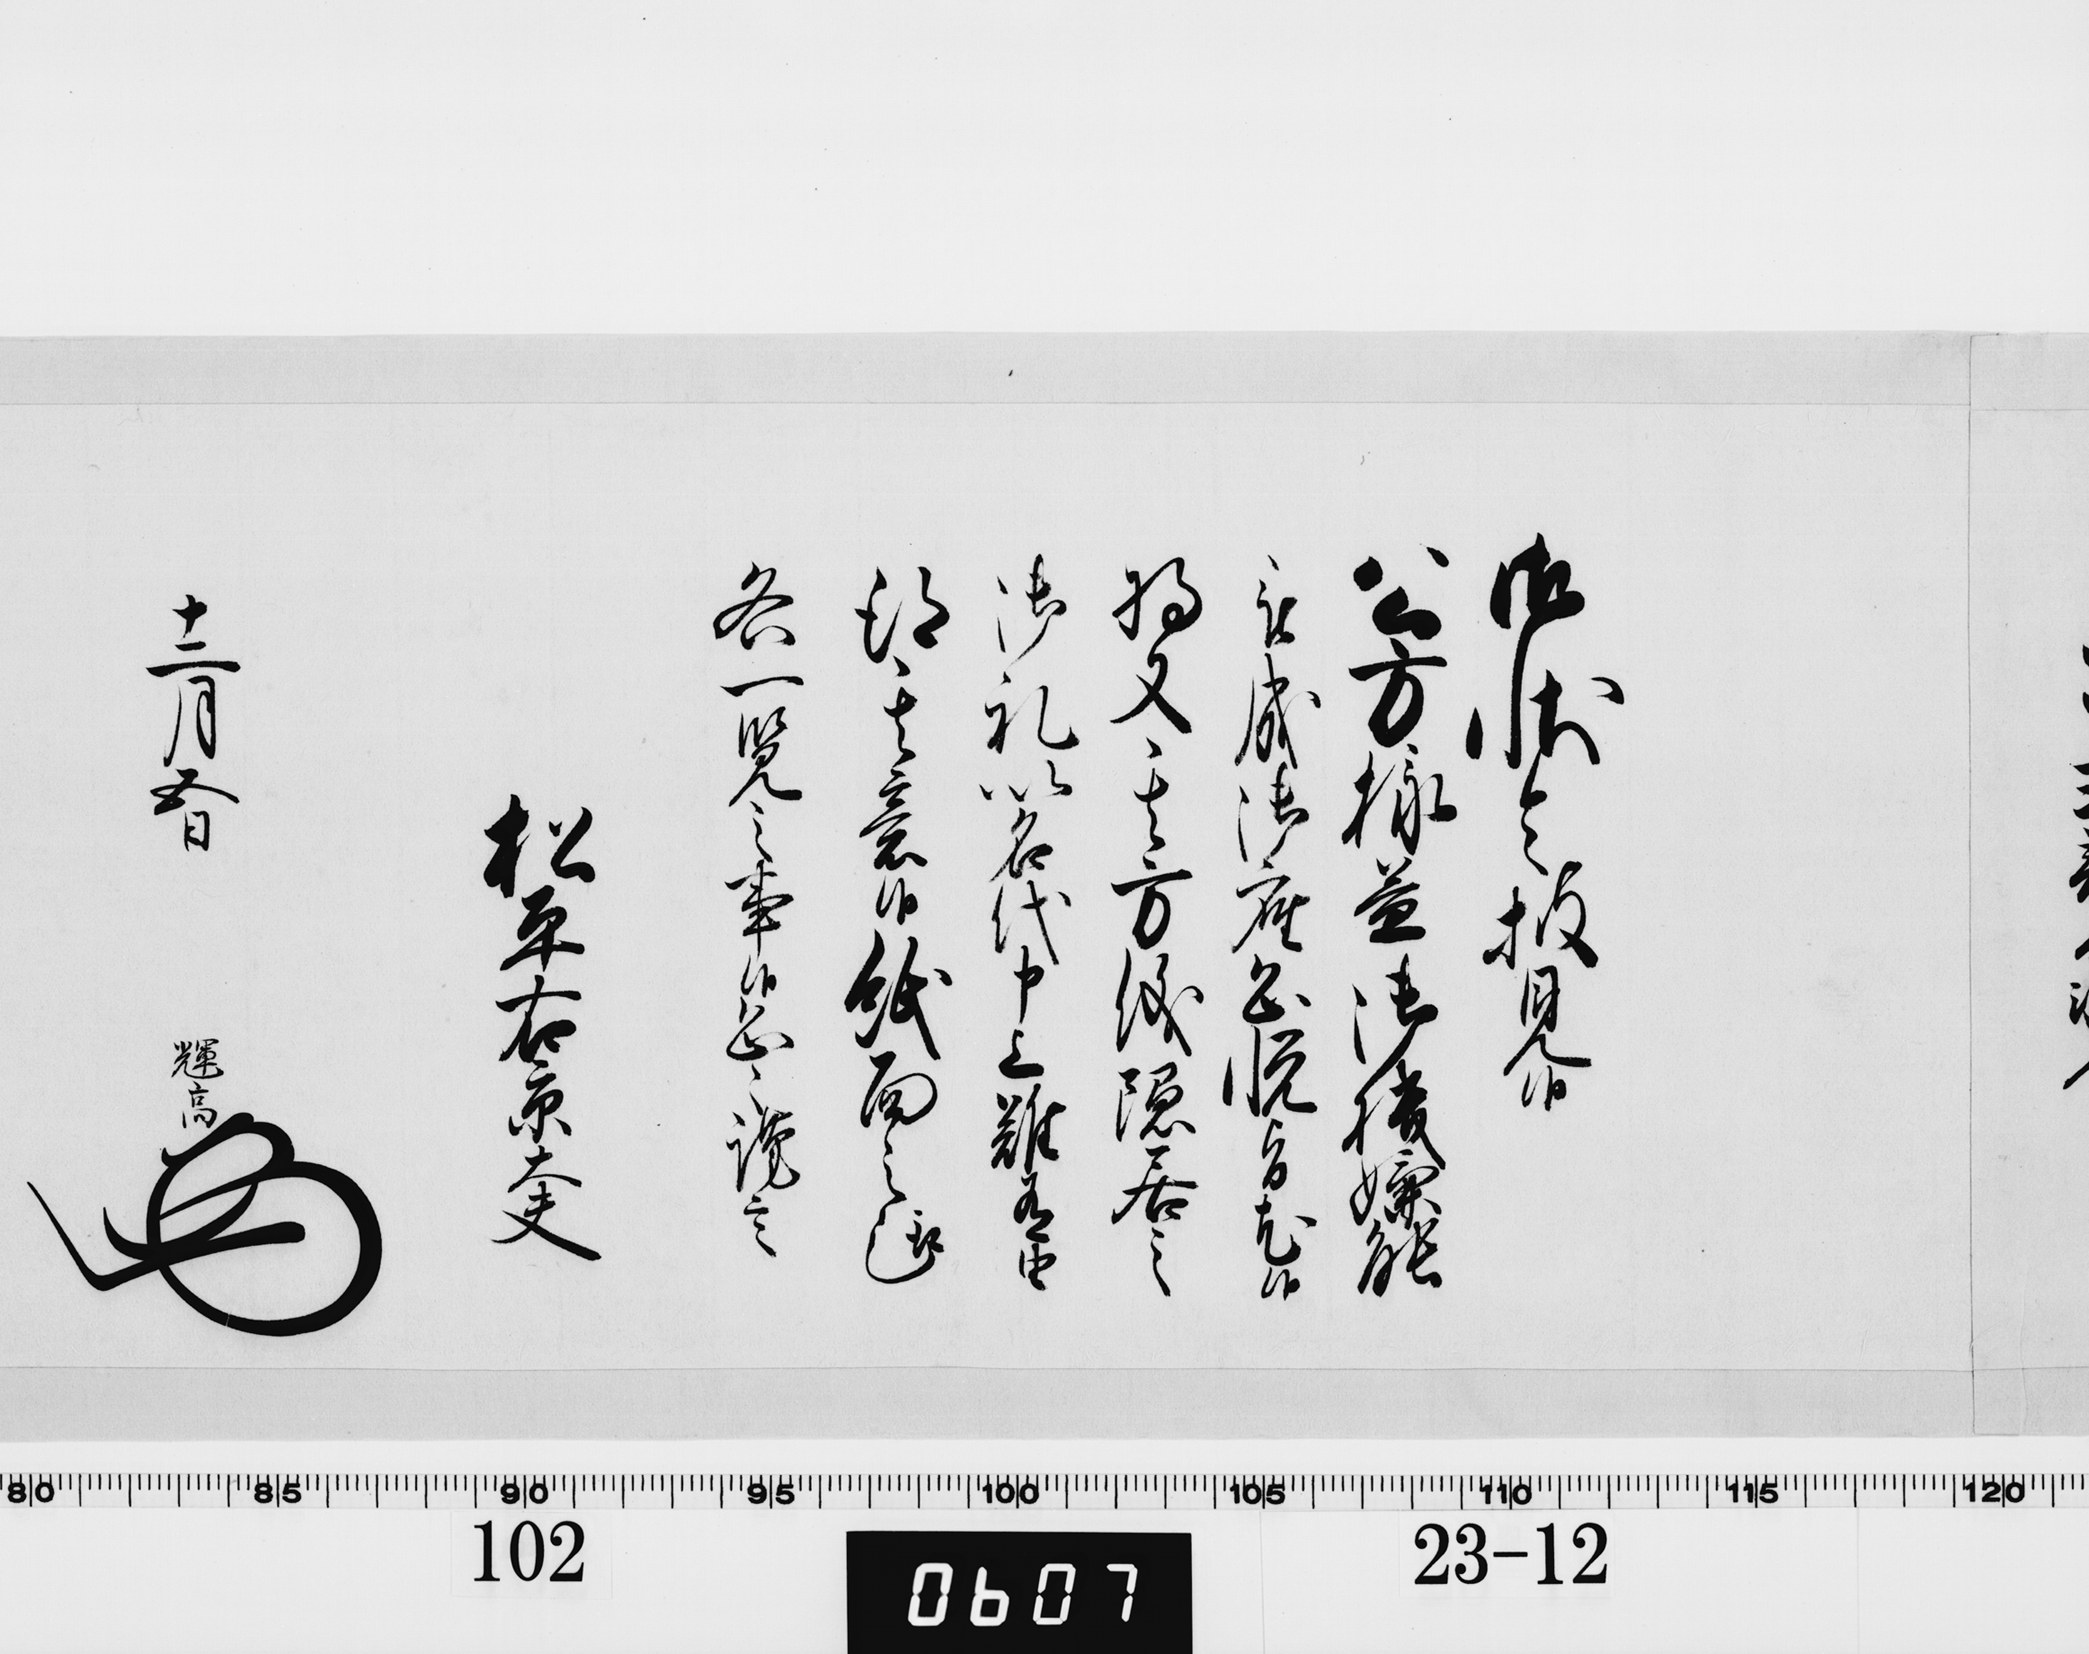 御状令披見候
公方様益御機嫌能
被成御座恐悦旨尤候
将又其方儀隠居之
御礼以名代申上難有由
得其意候紙面之趣
各一覧之事候恐々謹言
松平右京大夫
十二月五日
輝高
80 85 90 95 100 105 110 115 120
102
0607
23-12